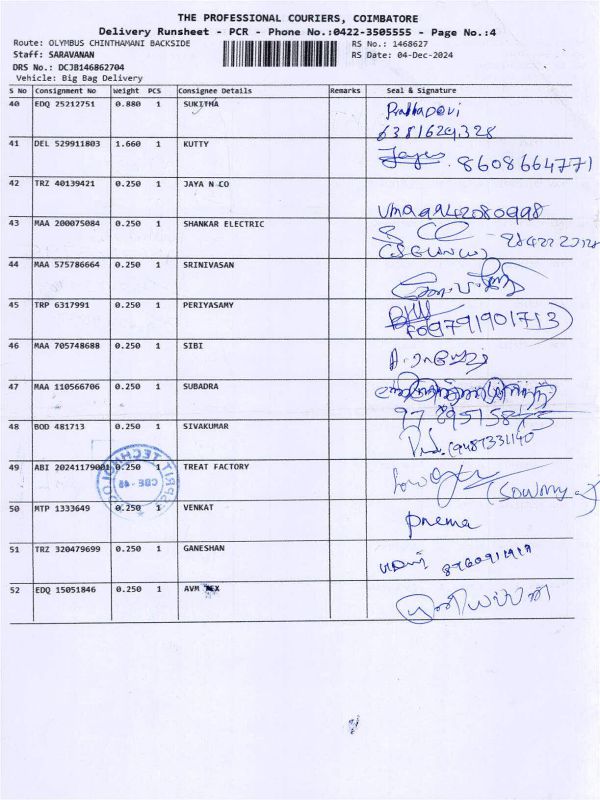 THE PROFESSIONAL COURIERS, COIMBATORE
Delivery Runsheet - PCR - Phone No.:0422-3505555 - Page No.:4
Route: OLYMBUS CHINTHAMANI BACKSIDE RS No.: 1468627
Staff: SARAVANAN RS Date: 04-Dec-2024
DRS No.: DCJB146862704
Vehicle: Big Bag Delivery
S No Consignment No Weight PCS Consignee Details Remarks Seal & Signature
40 EDQ 25212751 0.880 1 SUKITHA
6381629328
41 DEL 529911803 1.660 1 KUTTY 8608664771
42 TRZ 40139421 0.250 1 JAYA N CO
Uma 9942080998
43 MAA 200075084 0.250 1 SHANKAR ELECTRIC
44 MAA 575786664 0.250 1 SRINIVASAN
45 TRP 6317991 0.250 1 PERIYASAMY
9791901713
46 MAA 705748688 0.250 1 SIBI
47 MAA 110566706 0.250 1 SUBADRA
48 BOD 481713 0.250 1 SIVAKUMAR
9487331140
49 ABI 20241179001 0.250 1 TREAT FACTORY
(Sowmya)
50 MTP 1333649 0.250 1 VENKAT
Prema
51 TRZ 320479699 0.250 1 GANESHAN
52 EDQ 15051846 0.250 1 AVM TEX